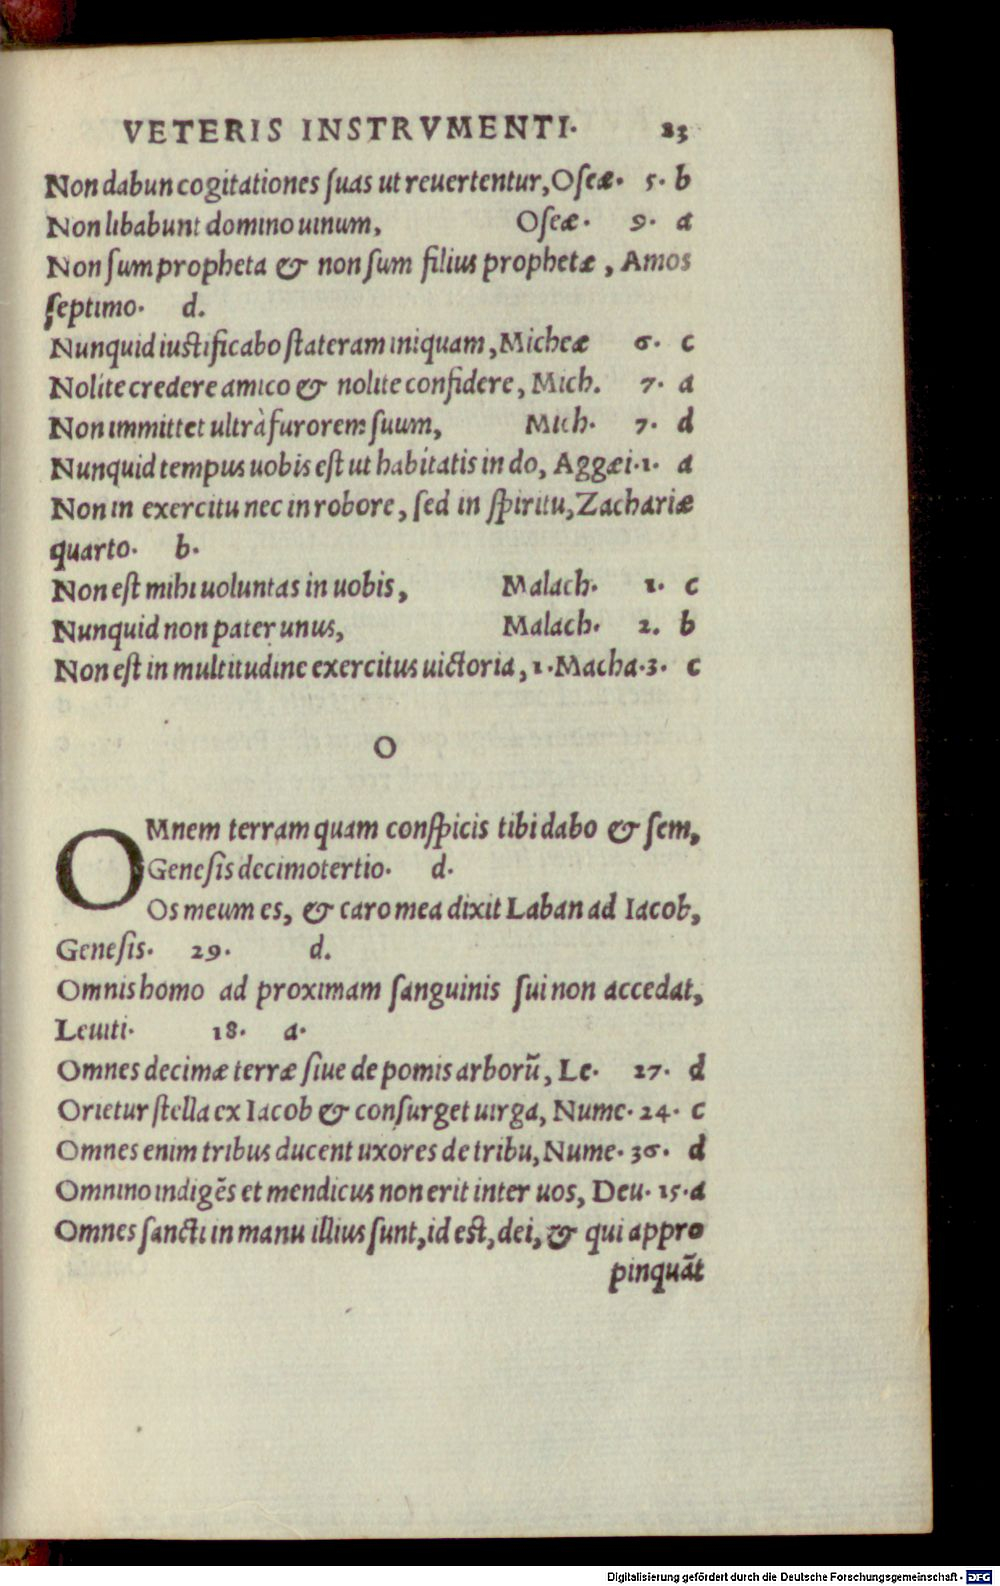 VETERIS INSTRVMENTI. 23
Non dabun cogitationes ſuas ut reuertentur, Oſeæ. 5. b
Non libabunt domino uinum, Oſeæ. 9. a
Non ſum propheta & non ſum filius prophetæ, Amos
ſeptimo. d.
Nunquid iuſtificabo ſtateram iniquam, Micheæ 6. c
Nolite credere amico & nolite confidere, Mich. 7. a
Non immittet ultrà furorem ſuum, Mich. 7. d
Nunquid tempus uobis eſt ut habitatis in do, Aggæi. 1. a
Non in exercitu nec in robore, ſed in ſpiritu, Zachariæ
quarto. b.
Non eſt mihi uoluntas in uobis, Malach. 1. c
Nunquid non pater unus, Malach. 2. b
Non eſt in multitudine exercitus uictoria, 1. Macha. 3. c
O
OMnem terram quam conſpicis tibi dabo & ſem,
Geneſis decimotertio. d.
Os meum es, & caro mea dixit Laban ad Iacob,
Geneſis. 29. d.
Omnis homo ad proximam ſanguinis ſui non accedat,
Leuiti. 18. a.
Omnes decimæ terræ ſiue de pomis arborū, Le. 27. d
Orietur ſtella ex Iacob & conſurget uirga, Nume. 24. c
Omnes enim tribus ducent uxores de tribu, Nume. 36. d
Omnino indigēs et mendicus non erit inter uos, Deu. 15. a
Omnes ſancti in manu illius ſunt, id eſt, dei, & qui appro
pinquāt
Digitalisierung gefördert durch die Deutsche Forschungsgemeinschaft - DFG